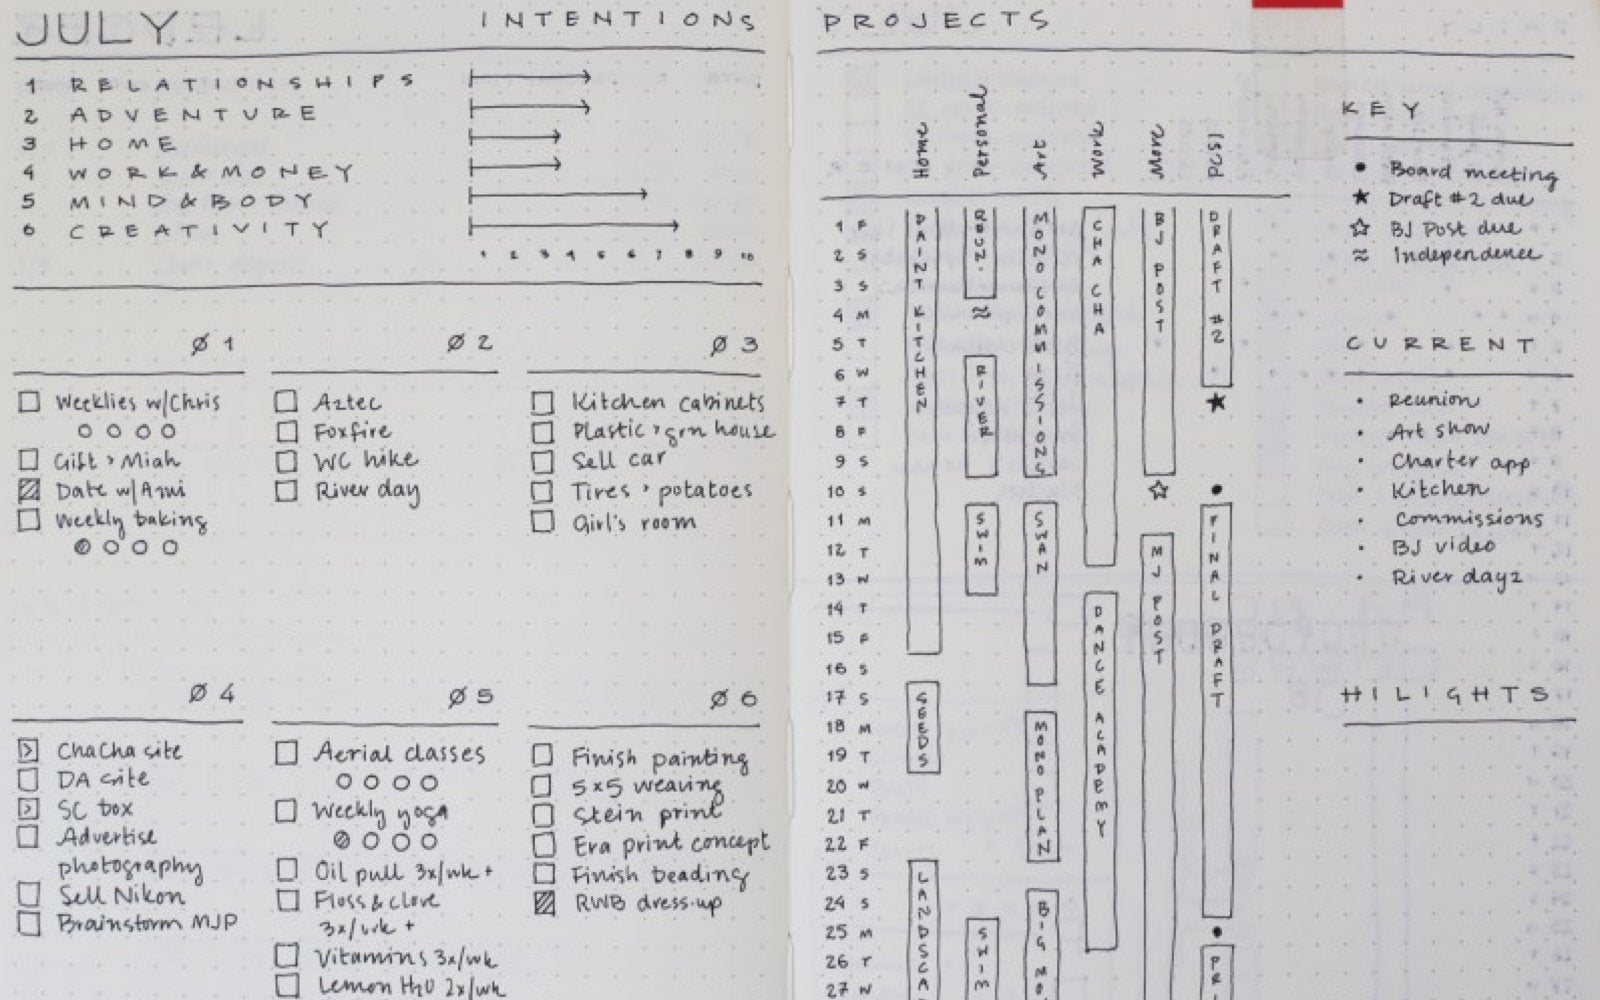 JULY...
INTENTIONS
1 RELATIONSHIPS
2 ADVENTURE
3 HOME
4 WORK & MONEY
5 MIND & BODY
6 CREATIVITY
1 2 3 4 5 6 7 8 9 10
Ø1
Weeklies w/Chris
Gift > Miah
Date w/Azui
Weekly baking
Ø2
Aztec
Foxfire
WC hike
River day
Ø3
Kitchen cabinets
Plastic > grn house
Sell car
Tires > potatoes
Girl's room
Ø4
ChaCha site
DA site
SC box
Advertise
photography
Sell Nikon
Brainstorm MJP
Ø5
Aerial classes
Weekly yoga
Oil pull 3x/wk +
Floss & clove
3x/wk +
Vitamins 3x/wk
Lemon H2O 2x/wk
Ø6
Finish painting
5x5 weaving
Stein print
Era print concept
Finish beading
RWB dress-up
PROJECTS
Home
Personal
Art
Work
More
PCSI
1 F
2 S
3 S
4 M
5 T
6 W
7 T
8 F
9 S
10 S
11 M
12 T
13 W
14 T
15 F
16 S
17 S
18 M
19 T
20 W
21 T
22 F
23 S
24 S
25 M
26 T
27 W
PAINT KITCHEN
SEEDS
LANDSCA
≈
RIVER
SWIM
SWIM
MONO COMMISSIONS
SWAN
MONO PLAN
BIG MO
CHA CHA
DANCE ACADEMY
BJ POST
☆
MJ POST
DRAFT #2
★
•
FINAL DRAFT
•
PRI
KEY
• Board meeting
★ Draft #2 due
☆ BJ Post due
≈ Independence
CURRENT
• Reunion
• Art show
• Charter app
• Kitchen
• Commissions
• BJ video
• River day2
HILIGHTS